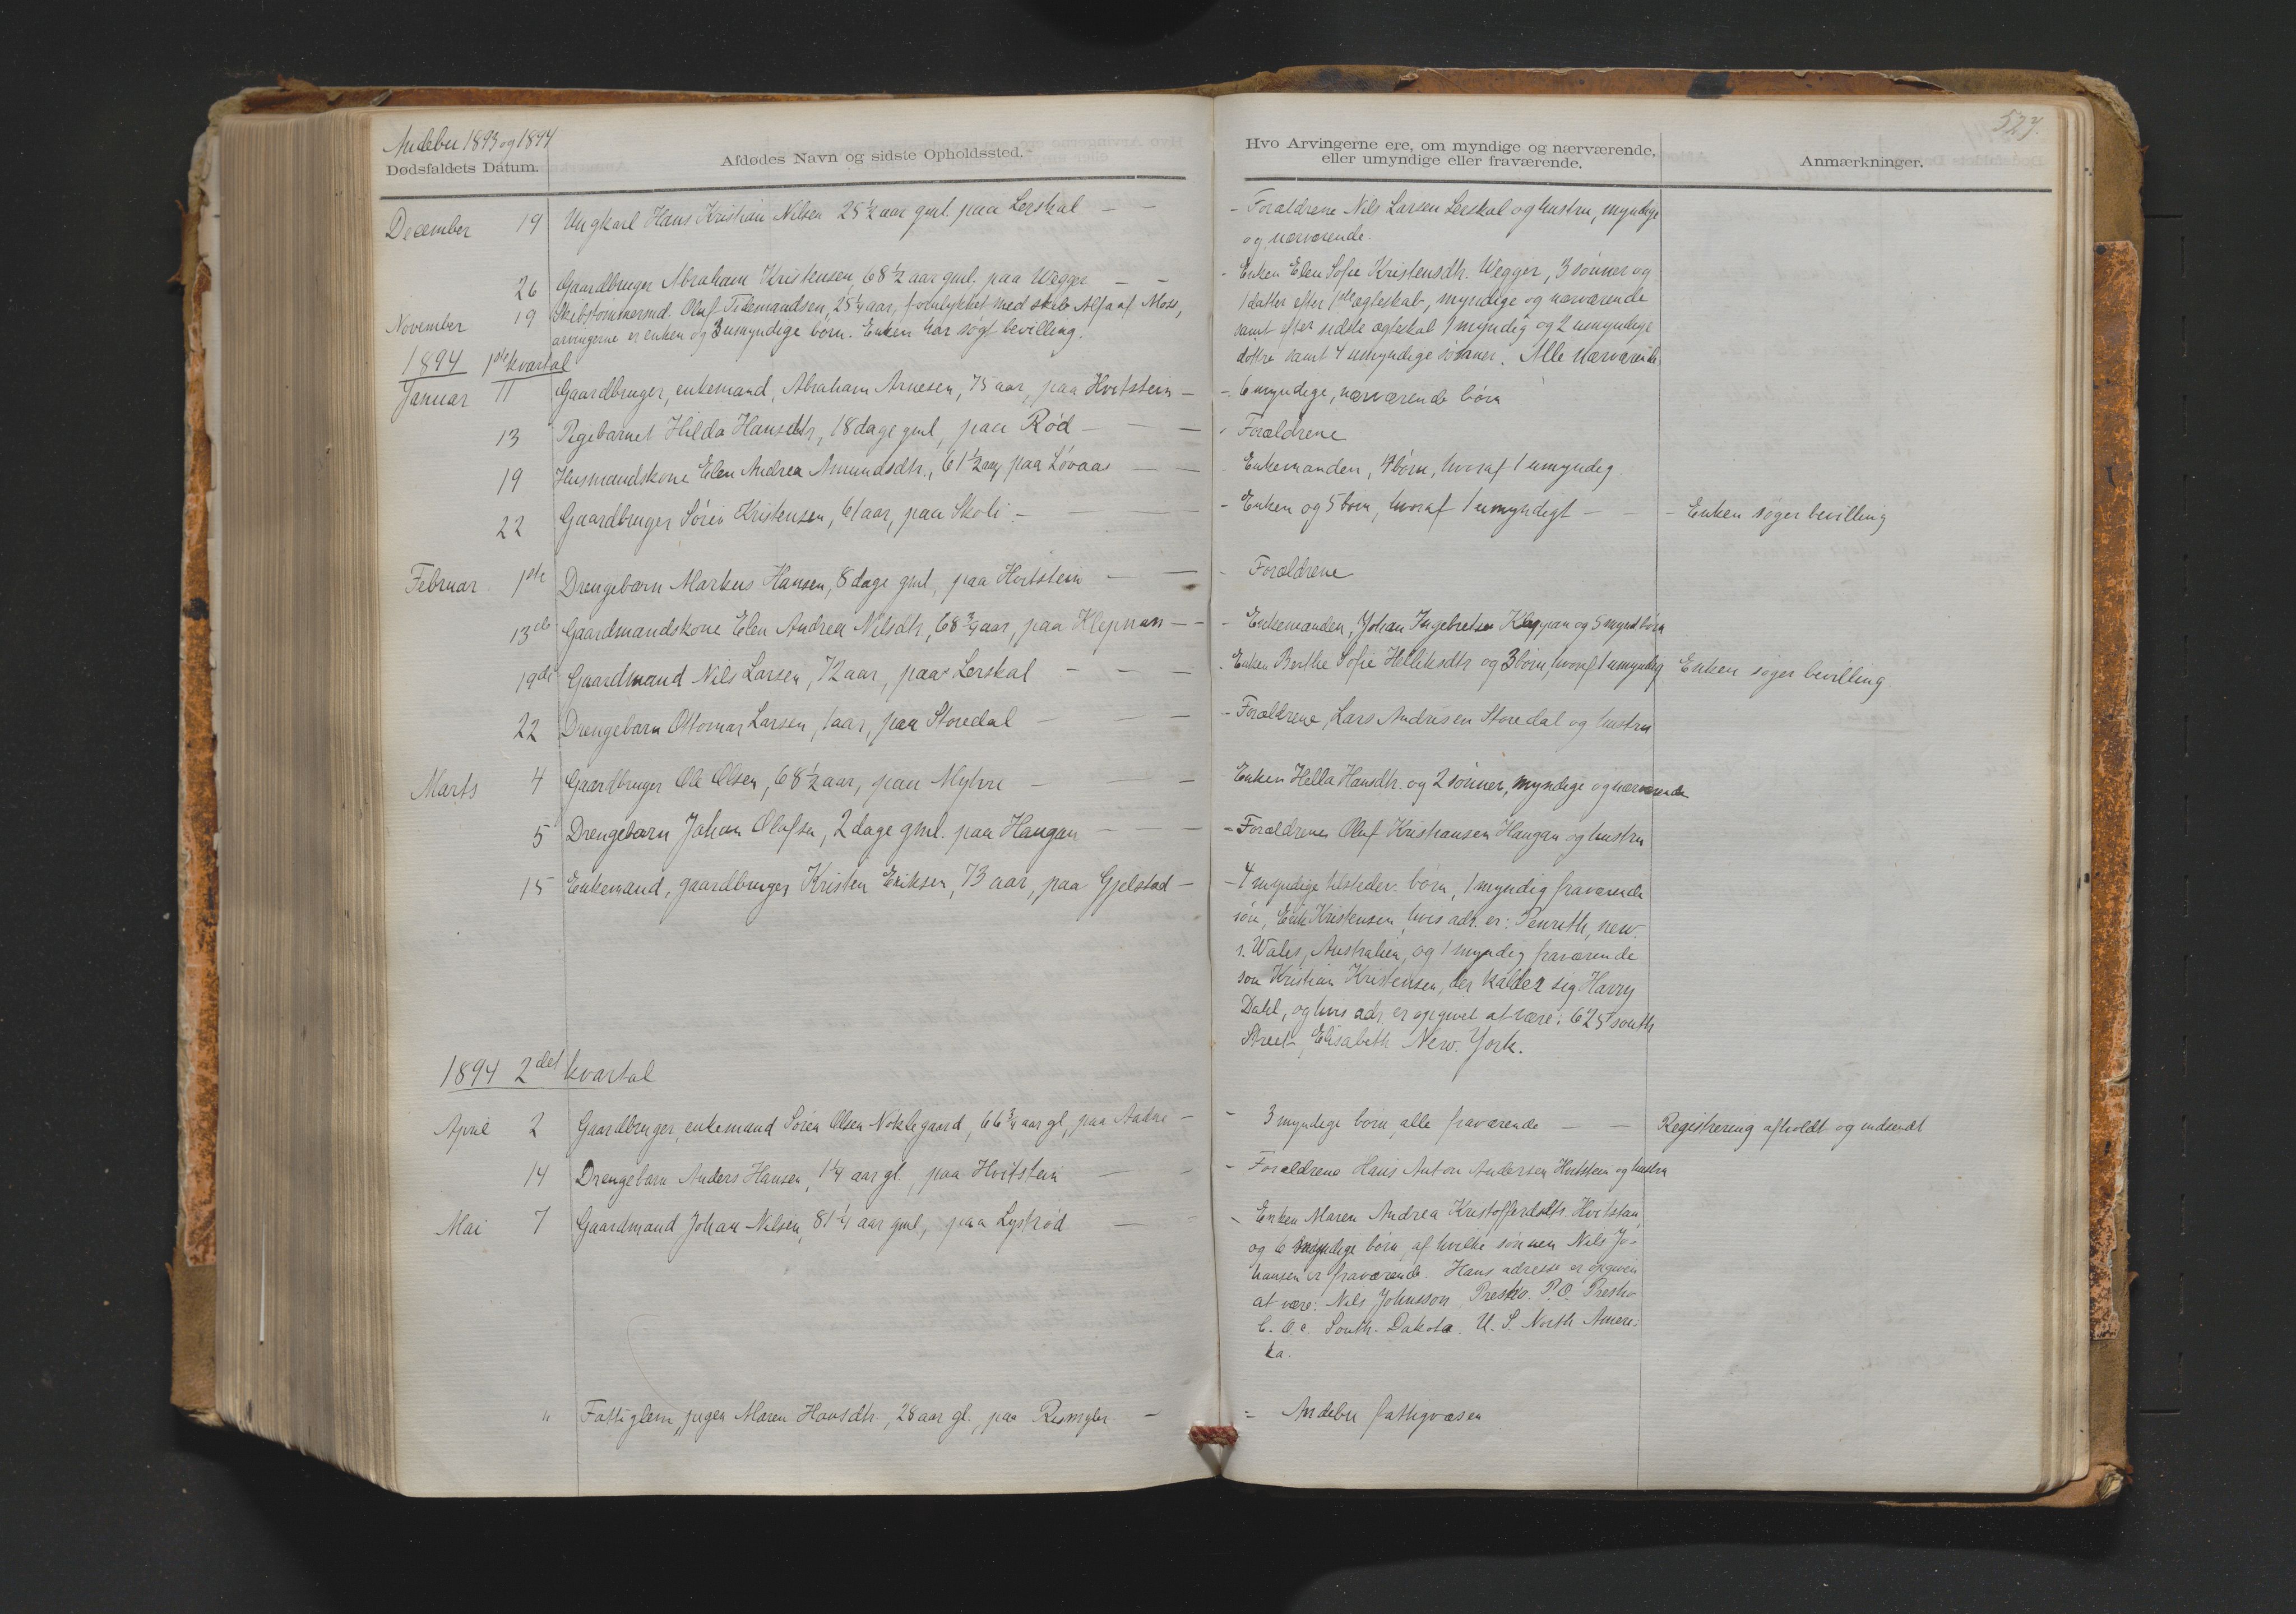 Andebu 1893 og 1894
527.
Dødsfaldets Datum.
Afdødes Navn og sidste Opholdssted.
Hvo Arvingerne ere, om myndige og nærværende,
eller umyndige eller fraværende.
Anmærkninger.
December 19 Ungkarl Hans Kristian Nilsen 25 1/2 aar gml. paa Lerskal — — – Forældrene Nils Larsen Lerskal og hustru, myndige
og nærværende.
26 Gaardbruger Abraham Kristensen, 68 1/2 aar gml. paa Wegger — — - Enken Elen Sofie Kristensdtr. Wegger, 3 sønner og
November 19 Skibstømmermd. Oluf Tilemandsen, 25 1/4 aar, forulykket med skib Alfa af Moss, 1 datter efter 1ste ægteskab, myndige og nærværende
arvingerne er enken og 3 umyndige børn. Enken har søgt bevilling. samt efter sidste ægteskab 1 myndig og 2 umyndige
1894 1ste kvartal døttre samt 4 umyndige sønner. Alle nærværende.
Januar 11 Gaardbruger, enkemand, Abraham Arnesen, 75 aar, paa Hvitstein — - 6 myndige, nærværende børn
13 Pigebarnet Hilda Hansdtr, 18 dage gml, paa Rød — — — Forældrene
19 Husmandskone Elen Andrea Amundsdtr., 61 1/2 aar, paa Løvaas — — Enkemanden, 4 børn, hvoraf 1 umyndig.
22 Gaardbruger Søren Kristensen, 61 aar, paa Skoli — — — – Enken og 5 børn, hvoraf 1 umyndigt — — – Enken søger bevilling
Februar 1ste Drengebarn Markus Hansen, 8 dage gml, paa Hvitstein — — - Forældrene
13de Gaardmandskone Elen Andrea Nilsdtr, 68 3/4 aar, paa Klepnan — — - Enkemanden, Johan Ingebretsen Kleppan og 5 mynd børn
19de Gaardmand Nils Larsen, 72 aar, paa Lerskal — — — Enken Berthe Sofie Helliksdtr og 3 børn, hvoraf 1 umyndig Enken søger bevilling
22 Drengebarn Ottomar Larsen, 1 aar, paa Storedal — — — – Forældrene, Lars Andrisen Storedal og hustru
Marts 4 Gaardbruger Ole Olsen, 68 1/2 aar, paa Myhre — — — Enken Hella Hansdtr. og 2 sønner, myndige og nærværende
5 Drengebarn Johan Olafsen, 2 dage gml. paa Haugan — — — – Forældrene Oluf Kristiansen Haugan og hustru
15 Enkemand, gaardbruger Kristen Eriksen, 73 aar, paa Gjelstad — – 4 myndige tilstedev. børn, 1 myndig fraværende
søn, Erik Kristensen, hvis adr. er: Penrith, new.
s. Wales, Australien, og 1 myndig fraværende
søn Kristian Kristensen, der kalder sig Harry
Dahl, og hvis adr er opgivet at være: 625 south
Street, Elisabeth New. York.
1894 2det kvartal
April 2 Gaardbruger, enkemand Søren Olsen Nøklegaard, 66 3/4 aar gl, paa — – 3 myndige børn, alle fraværende — — Registrering afholdt og indsendt
14 Drengebarn Anders Hansen, 1 1/4 aar gl, paa Hvitstein — - – Forældrene Hans Anton Andersen Hvitstein og hustru
Mai 7 Gaardmand Johan Nilsen, 81 1/4 aar gml, paa Lystrød — - – Enken Maren Andrea Kristoffersdtr. Hvitstein,
og 6 myndige børn, af hvilke sønnen Nils Jo-
hansen er fraværende. Hans adresse er opgiven
at være: Nils Johnsson, Presho. P.O. Presho
C. O.a. South. Dakota. U. S. North Ameri-
ka.
" Fattiglem, pigen Maren Hansdtr, 28 aar gl., paa — = Andebu fattigvæsen